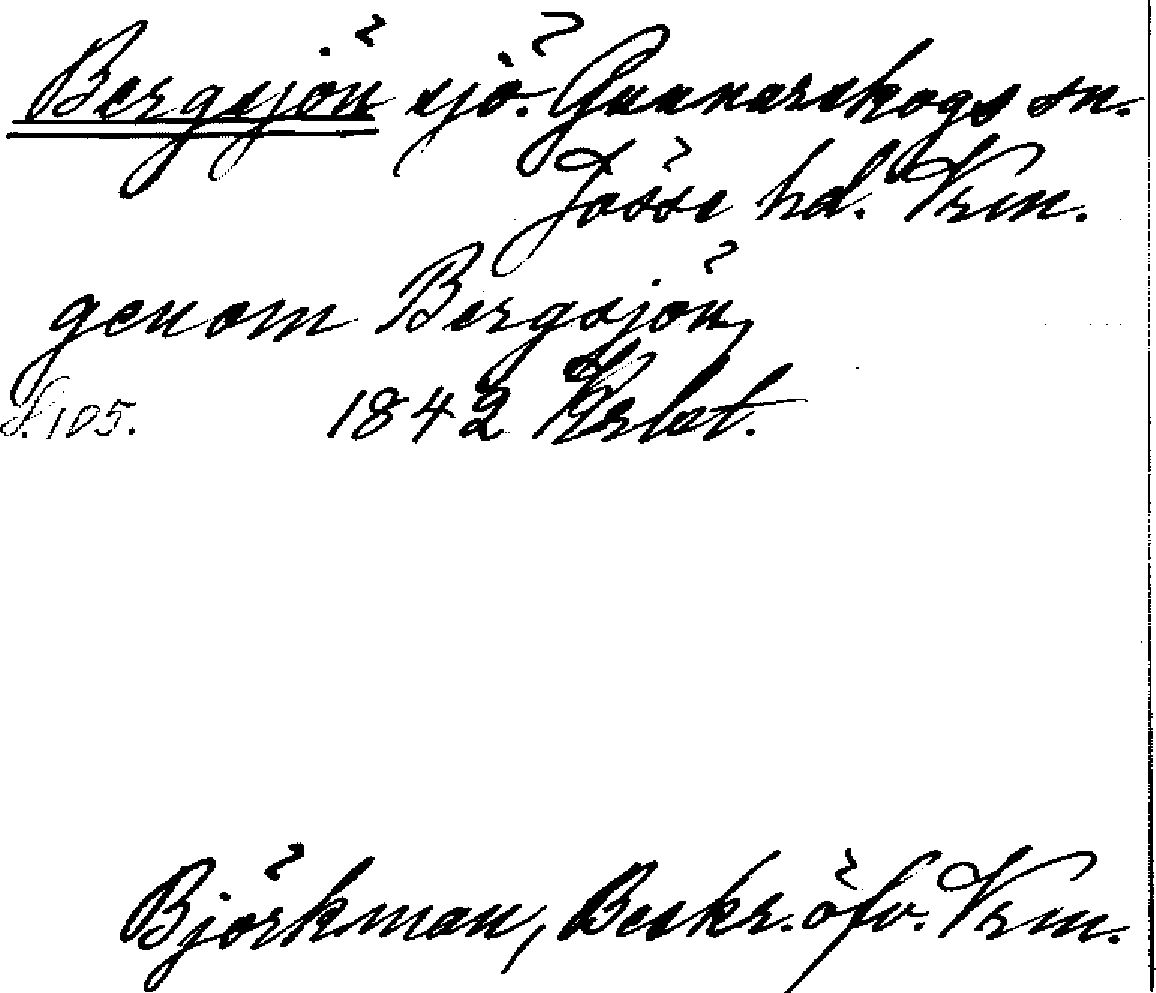 Bergsjön sjö. Gunnarskogs sn.
Jösse hd. Vrm.
genom Bergsjön,
S. 105. 1842 Krbet.
Björkman, Beskr. öfv. Vrm.